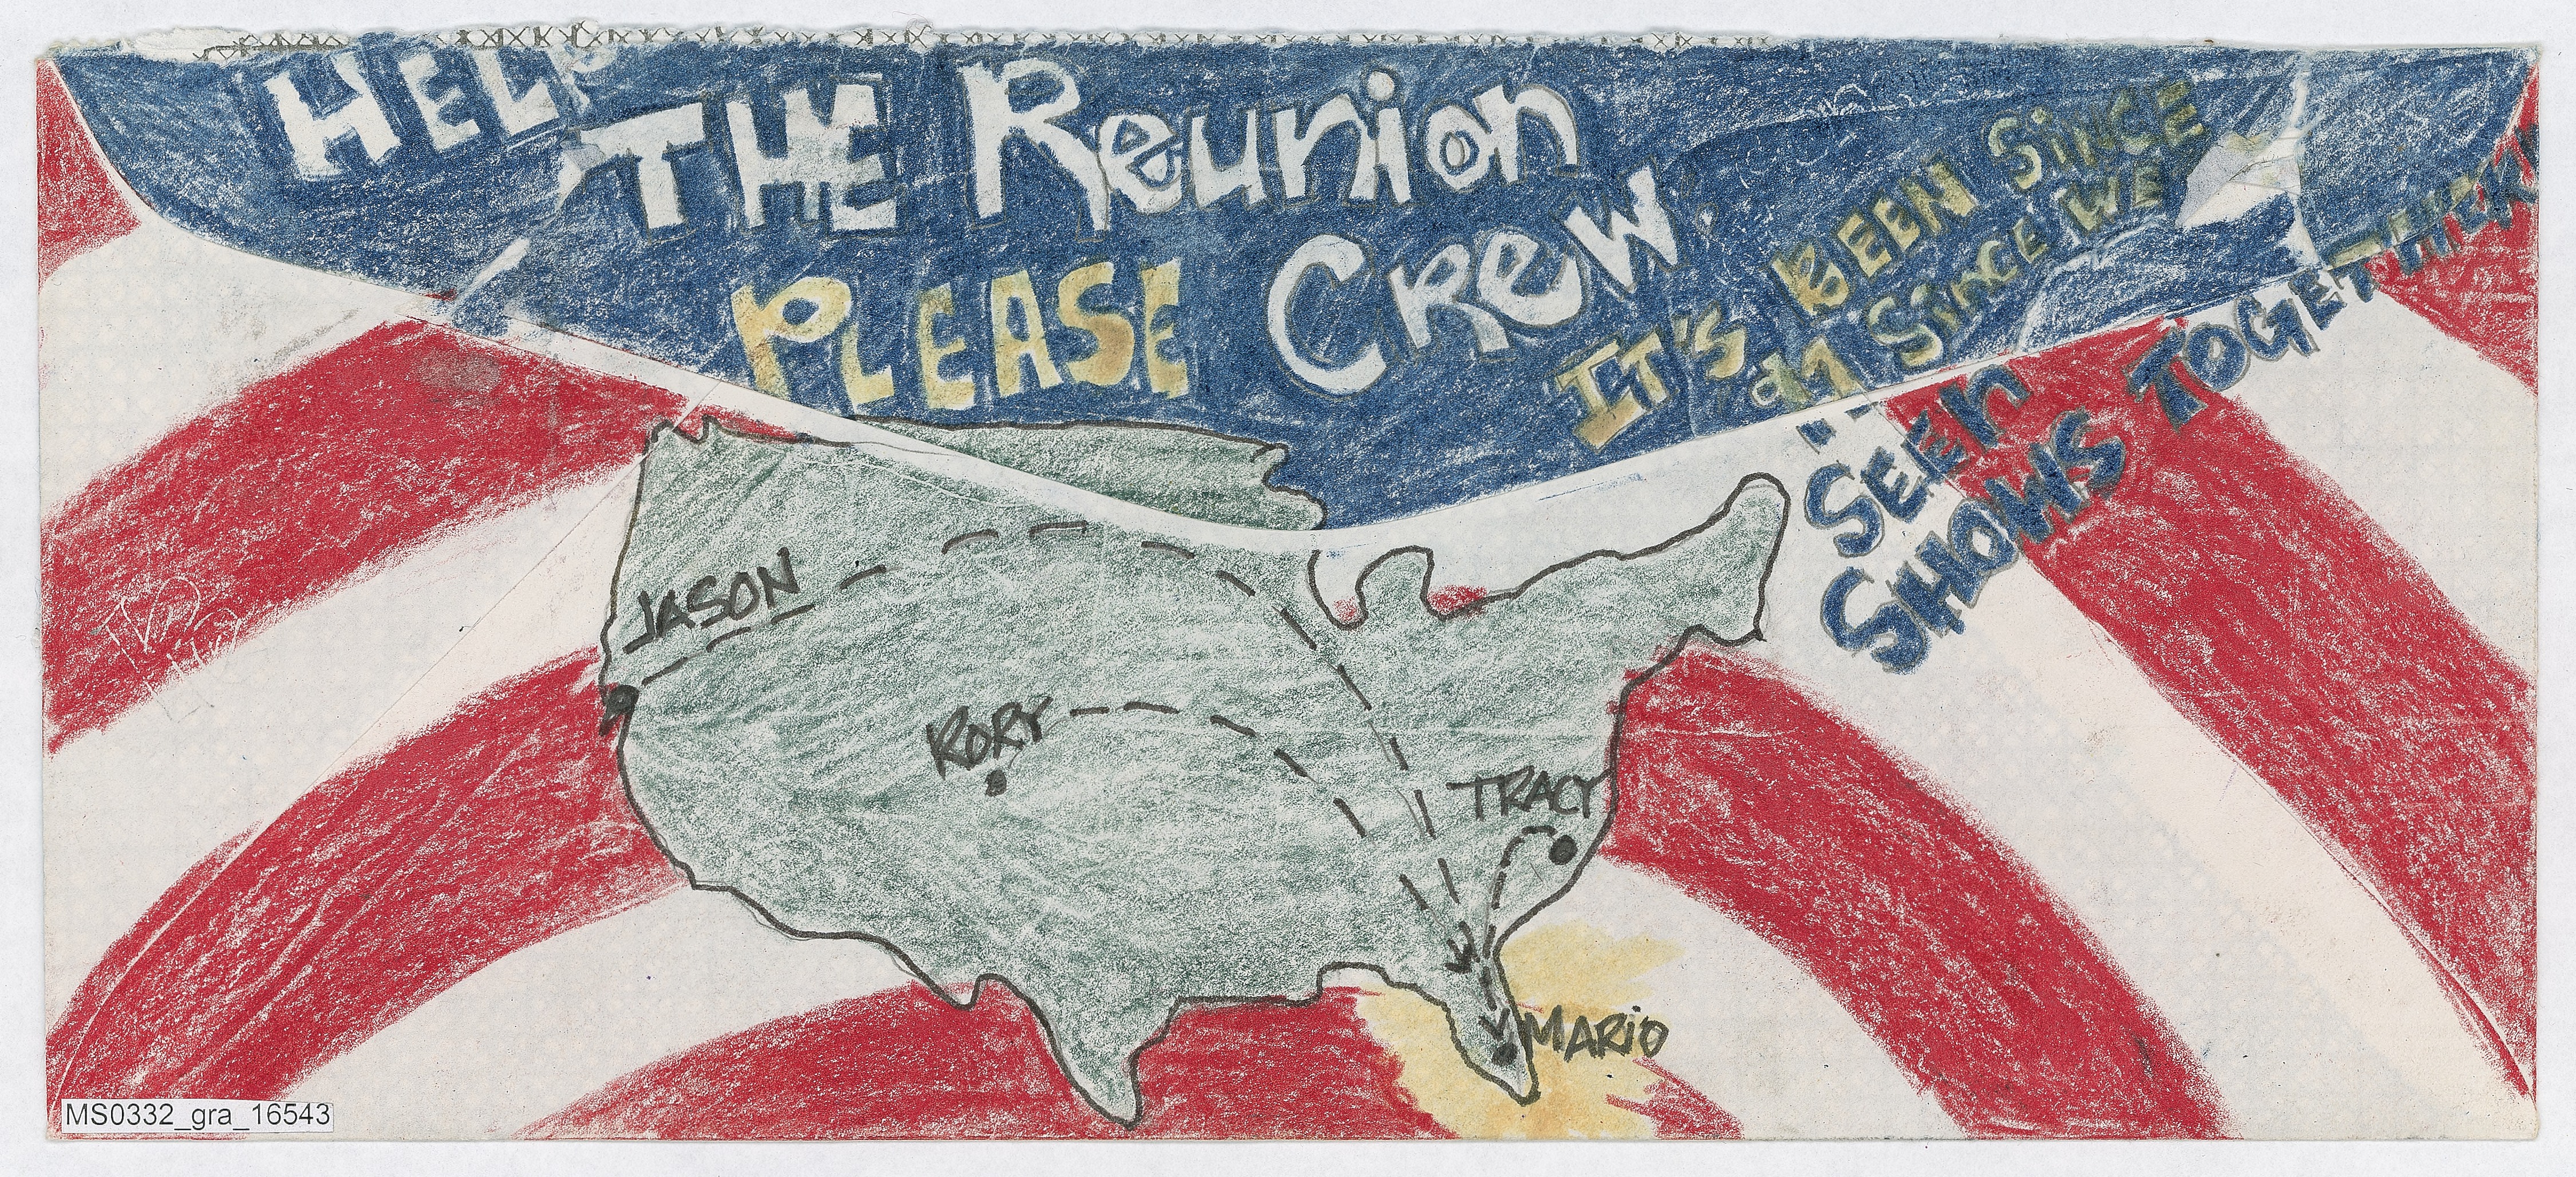 HELP
THE Reunion
Crew
PLEASE
IT'S BEEN SINCE
SINCE WE
SEEN
SHOWS TOGETHER
JASON
RORY
TRACY
MARIO
MS0332_gra_16543